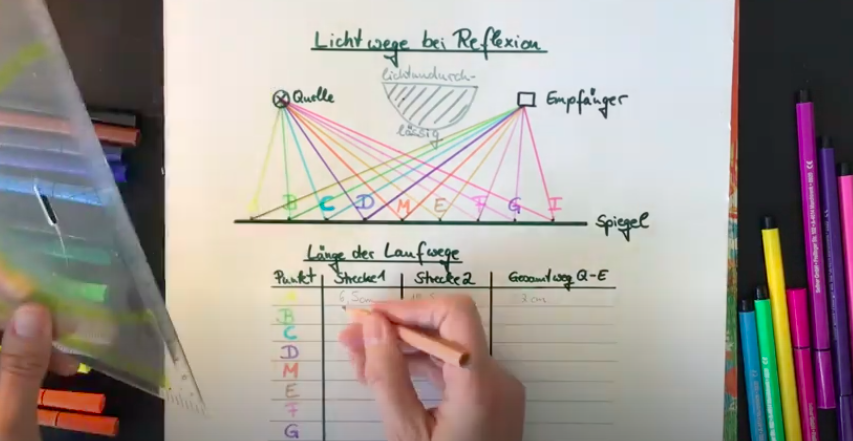 Lichtwege bei Reflexion
lichtundurch-
lässig
Quelle
Empfänger
B C D M E F G I
Spiegel
Länge der Laufwege
Punkt Strecke 1 Strecke 2 Gesamtweg Q-E
B
C
D
M
E
F
G